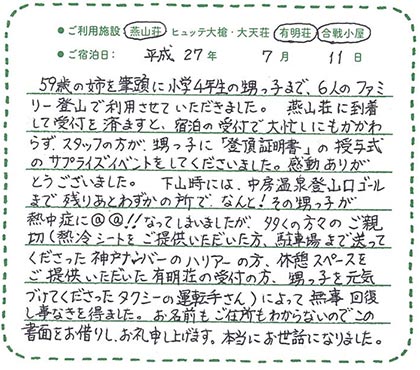 ●ご利用施設:燕山荘 ヒュッテ大槍・大天荘 有明荘 合戦小屋
●ご宿泊日: 平成 27年 7月 11日
59歳の姉を筆頭に小学4年生の甥っ子まで、6人のファミ
リー登山で利用させていただきました。 燕山荘に到着
して受付を済ますと、宿泊の受付で大忙しにもかかわ
らず、スタッフの方が、甥っ子に「登頂証明書」の授与式
のサプライズイベントをしてくださいました。感動ありが
とうございました。 下山時には、中房温泉登山口ゴール
まで残りあとわずかの所で、なんと!その甥っ子が
熱中症に@@!!なってしまいましたが、多々くの方々のご親
切(熱冷シートをご提供いただいた方、駐車場まで送って
くださった神戸ナンバーのハリアーの方、休憩スペースを
ご提供いただいた有明荘の受付の方、甥っ子を元気
づけてくださったタクシーの運転手さん)によって無事回復
し事なきを得ました。お名前もご住所もわからないのでこの
書面をお借りし、お礼申し上げます。本当にお世話になりました。